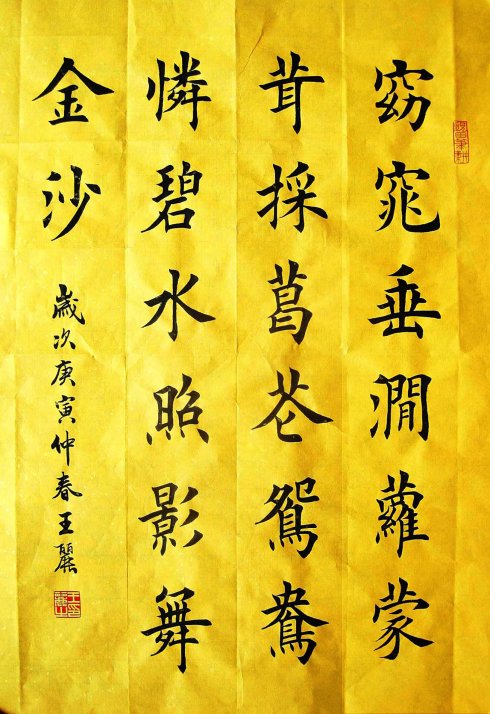 窈窕垂澗蘿蒙
茸採葛芲鴛鴦
憐碧水照影舞
金沙
歲次庚寅仲春王麗